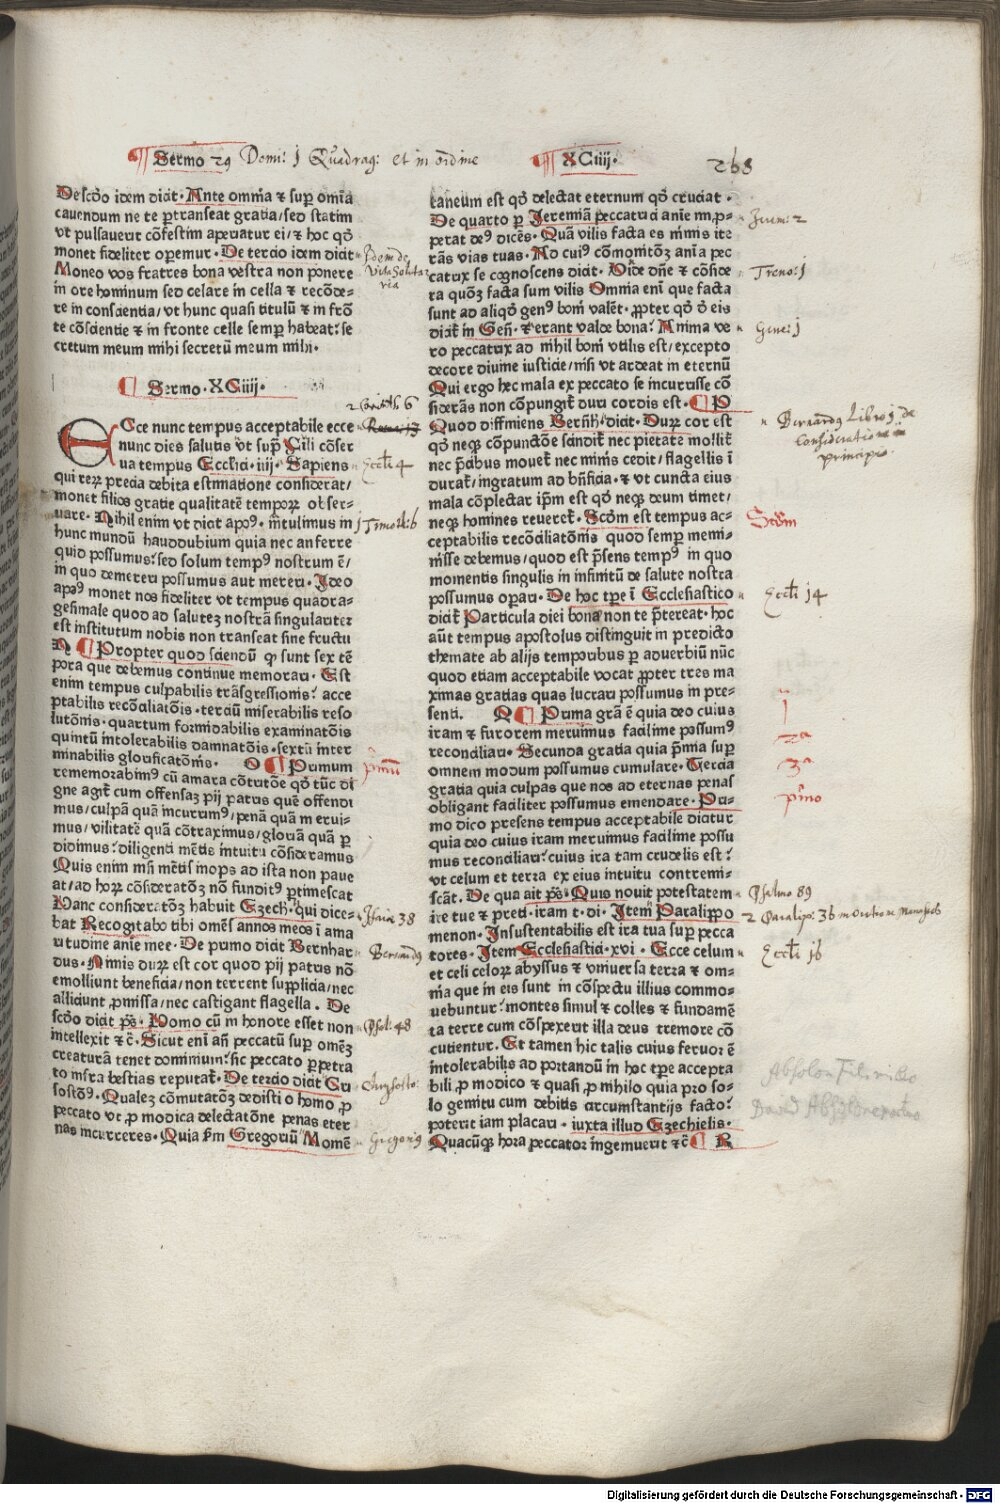 Sermo 29 Domi: 1 Quadrag: et in ordine
XCiiij.
268
De scďo idem dicit. Ante omnia ⁊ sup omĩa
cauendum ne te ptranseat gratia/sed statim
vt pulsauerit cõfestim aperiatur ei/⁊ hoc qď
monet fideliter opemur. De tercio idem dicit
Moneo vos fratres bona vestra non ponere
in ore hominum sed celare in cella ⁊ recõde-
re in conscientia/vt hunc quasi titulũ ⁊ in frõ
te cõscientie ⁊ in fronte celle semp habeat: se
cretum meum mihi secretũ meum mihi.
Idem de
vita solita
ria
Sermo. XCiiij.
2 Corinth: 6
ECce nunc tempus acceptabile ecce
nunc dies salutis vt sup Fili cõser
ua tempus Ecclici. iiij. Sapiens
Eccli 4
qui reꝝ precia debita estimatione considerat/
monet filios gratie qualitatẽ tempoꝝ obser-
uare. Nihil enim vt dicit apoꝰ. intulimus in
1 Timoth: 6
hunc mundũ hauddubium quia nec anferre
quid possumus: sed solum tempꝰ nostrum ẽ/
in quo demereri possumus aut mereri. Ideo
apoꝰ monet nos fideliter vt tempus quadra-
gesimale quod ad salutez nostrã singulariter
est institutum nobis non transeat sine fructu
N Propter quod sciendũ ꝙ sunt sex tẽ
pora que debemus continue memorari. Est
enim tempus culpabilis trãsgressionis: acce
ptabilis recõciliatõis. terciũ miserabilis reso
lutõnis. quartum formidabilis examinatõis
quintũ intolerabilis damnatõis. sextũ inter
minabilis glorificatõnis. O Primum
primũ
rememorabimꝰ cũ amara cõtritõe qď tũc di
gne agit cum offensaz pij patris quẽ offendi
mus/culpã quã incurrimꝰ/penã quã merui-
mus/vilitatẽ quã cõtraximus/gloriã quã p
didimus: diligenti mẽtis intuitu cõsideramus
Quis enim nisi mẽtis inops ad ista non paue
at/ad hoꝝ cõsideratõꝫ nõ funditꝰ ptimescat
Hanc consideratõꝫ habuit Ezech. qui dice-
Isaie 38
bat Recogitabo tibi omẽs annos meos ĩ ama
ritudine anie mee. De primo dicit Bernhar
Bernardꝰ
dus. Nimis duꝝ est cor quod pij patris nõ
emolliunt beneficia/non terrent supplicia/nec
alliciunt ꝓmissa/nec castigant flagella. De
scďo dicit p̃s. Homo cũ in honore esset non
Psal: 48
intellexit ⁊ c̃. Sicut eni añ peccatũ sup omẽꝫ
creaturã tenet dominium: sic peccato ppetra
to infra bestias reputat. De tercio dicit Cri
Chrysosto:
sostõꝰ. Qualez cõmutatõꝫ dedisti o homo ꝓ
peccato vt ꝓ modica delectatõne penas eter
nas incurreres. Quia s̃m Gregoriũ Momẽ
Gregoriꝰ
taneum est qď delectat eternum qď cruciat.
De quarto p Jeremiã peccatrici anie im p-
Jerem: 2
perat deꝰ dicẽs. Quã vilis facta es nimis ite
rãs vias tuas. Ad cuiꝰ cõmonitõꝫ ania pec
catrix se cognoscens dicit. Vide dñe ⁊ cõside
Treno: 1
ra quoꝫ facta sum vilis Omnia eni que facta
sunt ad aliqď genꝰ boni valẽt. ꝓpter qď ď eis
dicit in Geñ. ⁊ erant valde bona: Anima ve
Gene: 1
ro peccatrix ad nihil boni vtilis est/excepto
decore diuine iusticie/nisi vt ardeat in eternũ
Qui ergo hec mala ex peccato se incurrisse cõ
siderãs non cõpungit duri cordis est. P
Quod diffiniens Bernh̃. dicit. Duꝝ cor est
Bernardꝰ Libro 1 de
consideratione in
principio.
qď neqꝫ cõpunctõe scindit nec pietate mollit
nec p̃cibus mouet nec minis cedit/flagellis ĩ
durat/ingratum ad bñficia. ⁊ vt cuncta eius
mala cõplectar ip̃m est qď neqꝫ deum timet/
neqꝫ homines reueret. Scďm est tempus ac-
Scďm
ceptabilis recõciliatõnis quod semp memi-
nisse debemus/quod est p̃sens tempꝰ in quo
momentis singulis in infinitũ de salute nostra
possumus operari. De hoc tpe ĩ Ecclesiastico
Eccli 14
dicit Particula diei bona non te p̃tereat. hoc
aũt tempus apostolus distinguit in predicto
themate ab alijs temporibus p aduerbiũ nũc
quod etiam acceptabile vocat ꝓpter tres ma
ximas gratias quas lucrari possumus in pre-
senti. Q Prima grã ẽ quia deo cuius
1
iram ⁊ furorem meruimus facilime possumꝰ
2ª
reconciliari. Secunda gratia quia p̃mia sup
omnem modum possumus cumulare. Tercia
3ª
gratia quia culpas que nos ad eternas penas
obligant faciliter possumus emendare. Pri-
primo
mo dico presens tempus acceptabile dicitur
quia deo cuius iram meruimus facilime possu
mus reconciliari: cuius ira tam crudelis est:
vt celum et terra ex eius intuitu contremi-
scãt. De qua ait p̃s. Quis nouit potestatem
Psalmo 89
ire tue ⁊ preti. iram t. di. Item Paralippo
2 Paralipo: 36 in Oratione Manasses
menon. Insustentabilis est ira tua sup pecca
tores. Item Ecclesiastici. xvi. Ecce celum
Eccli 16
et celi celoꝝ abyssus ⁊ vniuersa terra ⁊ om-
nia que in eis sunt in cõspectu illius commo-
uebuntur: montes simul ⁊ colles ⁊ fundamẽ
ta terre cum cõspexerit illa deus tremore cõ
cutientur. Et tamen hic talis cuius feruor ẽ
intolerabilis ad portandũ in hoc tpe accepta
bili ꝓ modico ⁊ quasi ꝓ nihilo quia pro so-
Absolon Fili mi
lo gemitu cum debitis circumstantijs facto:
David Absolone
poterit iam placari. iuxta illud Ezechielis.
Quacũqꝫ hora peccator ingemuerit ⁊ c̃ R
Digitalisierung gefördert durch die Deutsche Forschungsgemeinschaft - DFG